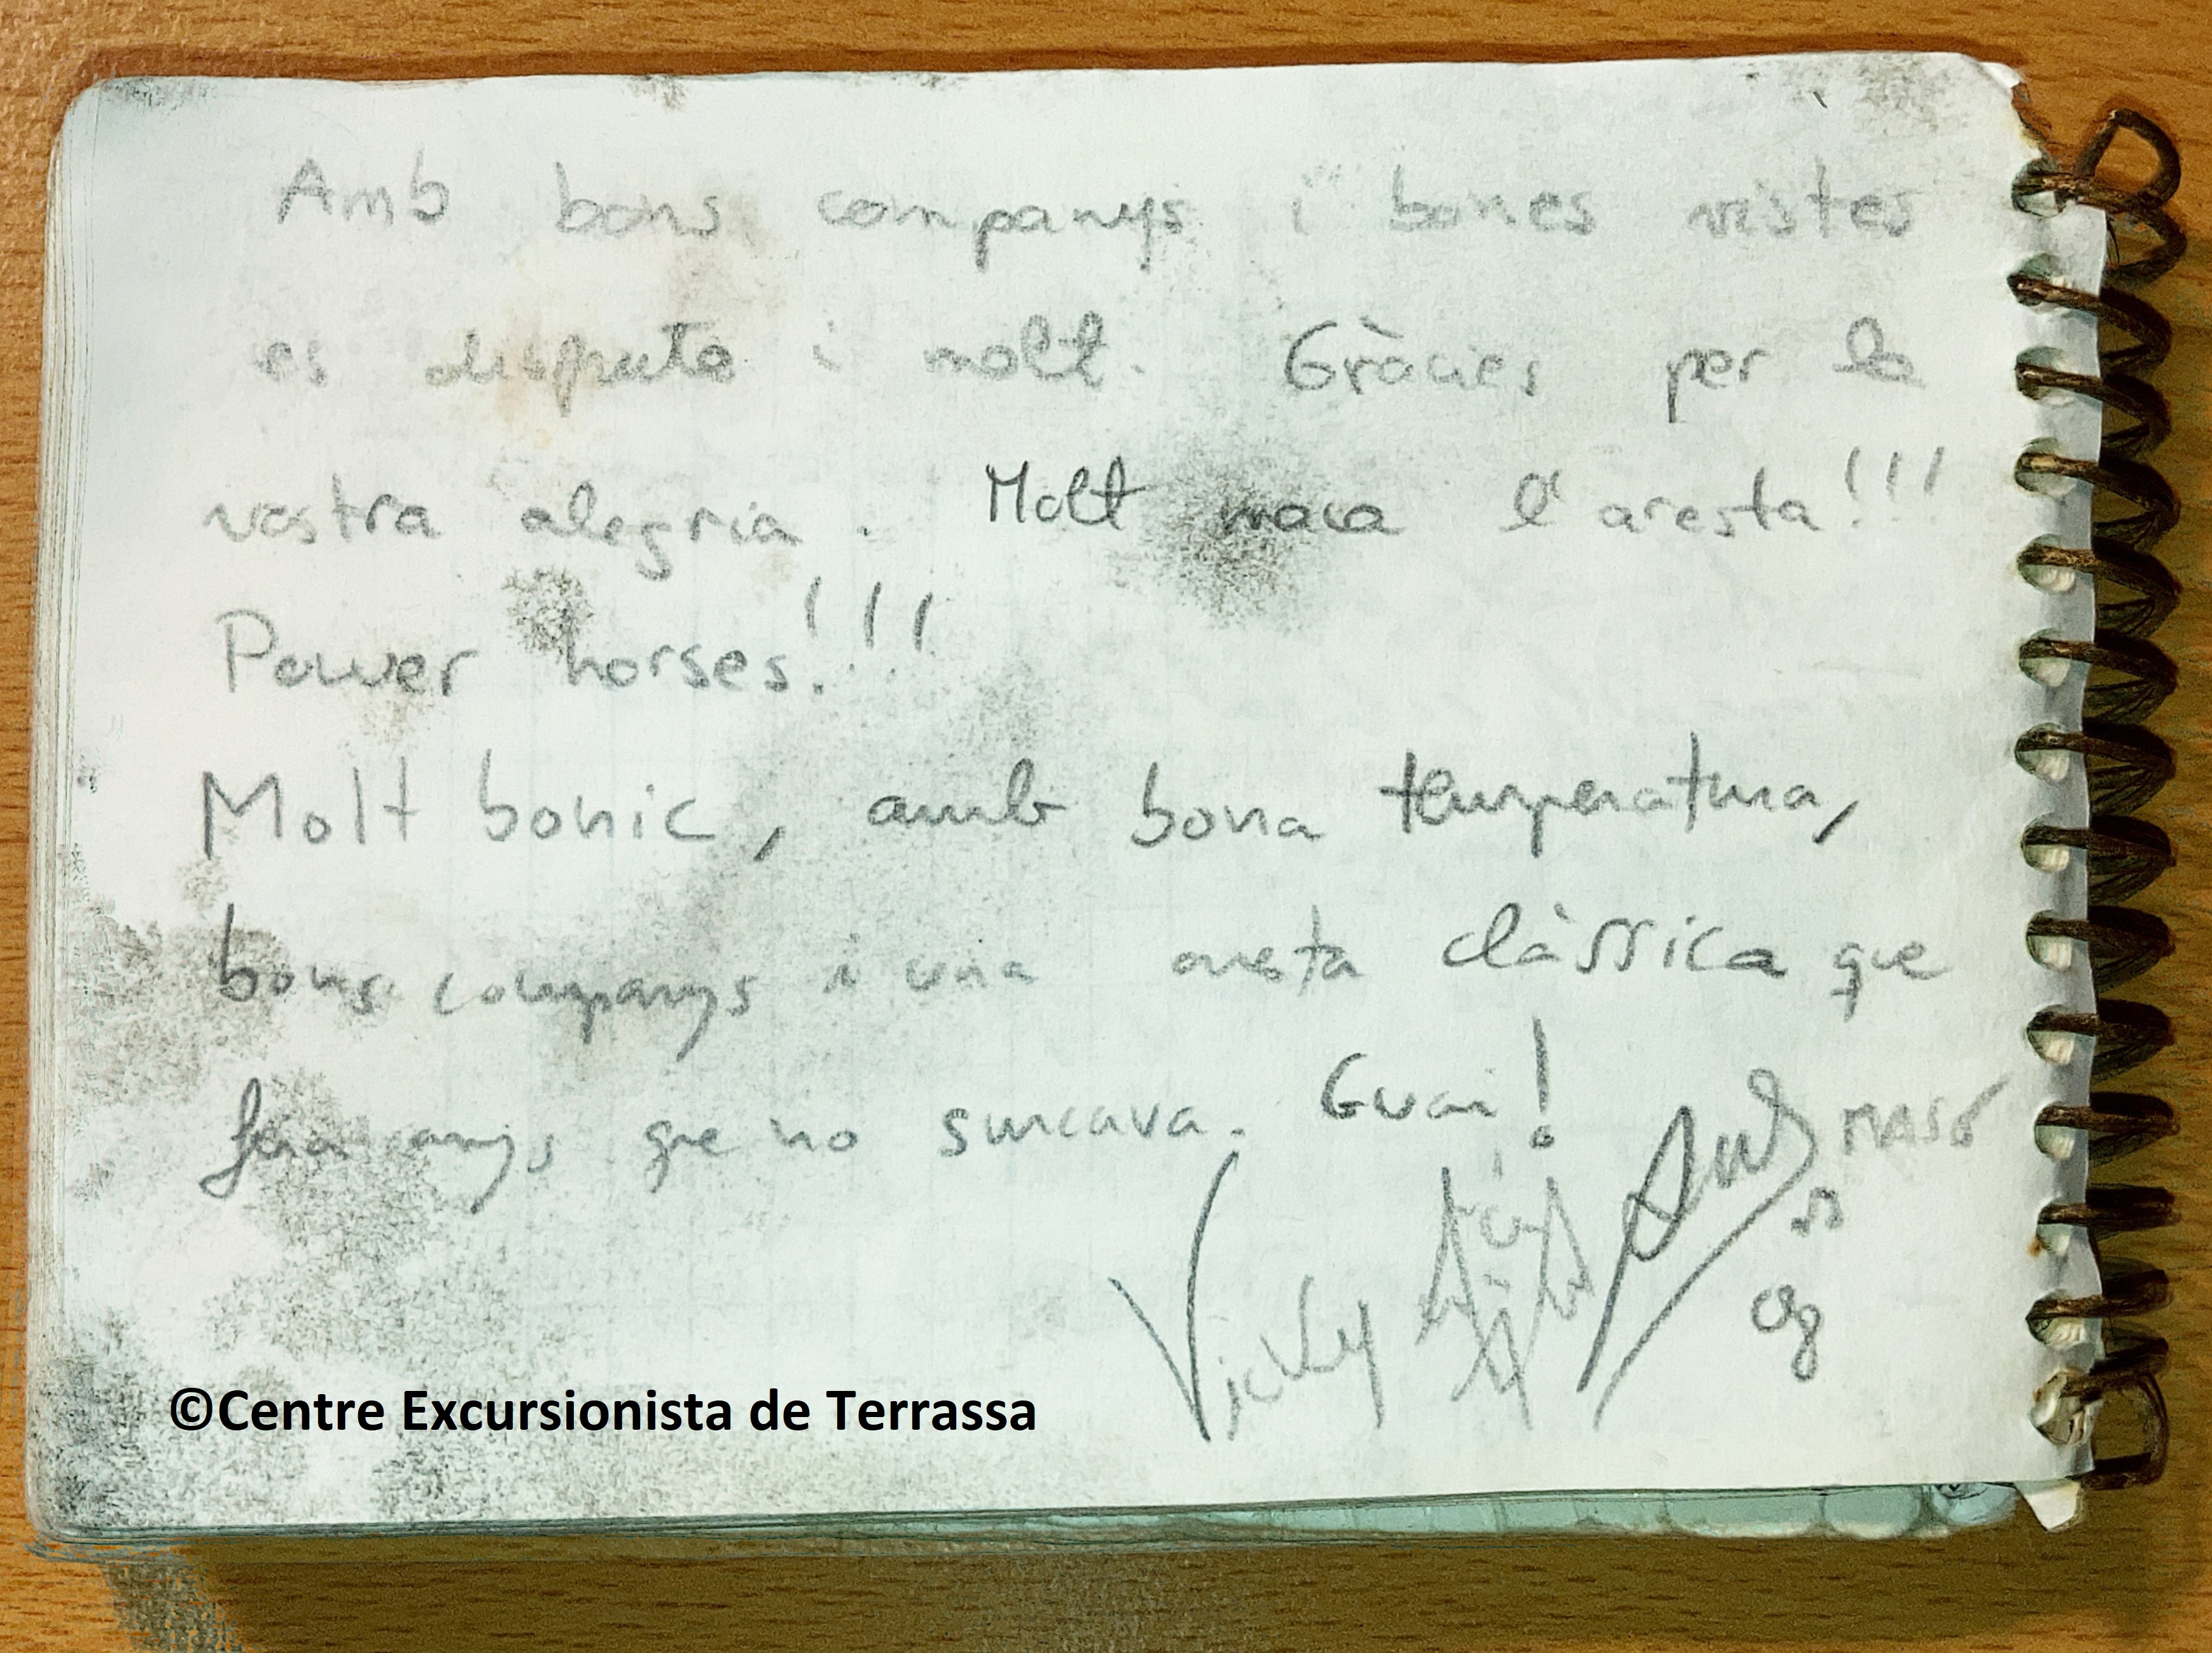 Amb bons companys i bones vistes
es disfruta i molt. Gràcies per la
vostra alegria. Molt maca l'aresta!!!
Power horses!!!
Molt bonic, amb bona temperatura,
bons companys i una aresta clàssica que
feia anys que no surcava. Guai!
MASÓ
Vicky
©Centre Excursionista de Terrassa